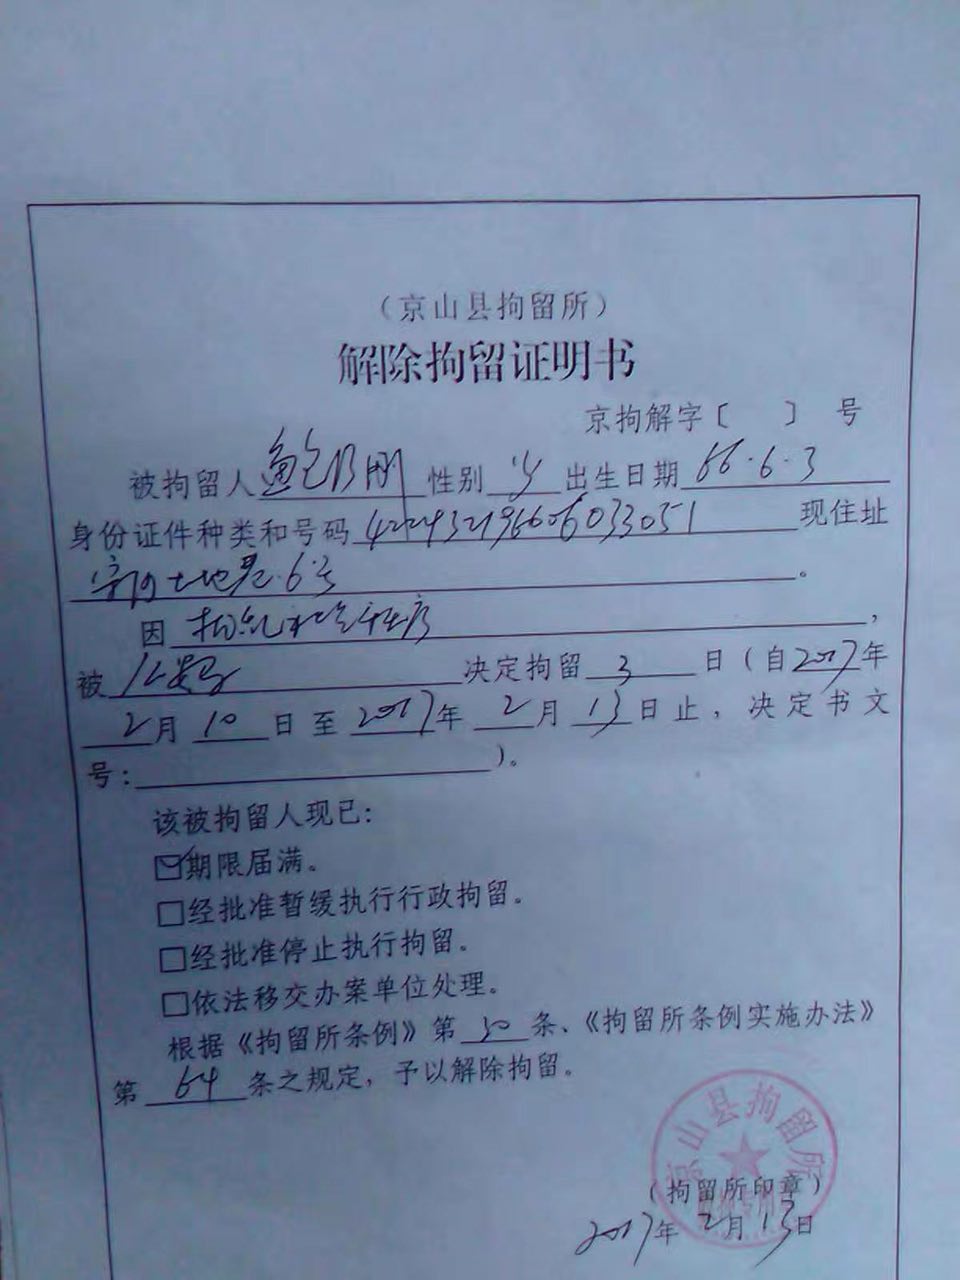 （京山县拘留所）
解除拘留证明书
京拘解字〔 〕 号
被拘留人鲍乃刚性别 出生日期66.6.3
身份证件种类和号码422432196606033051现住址
土地 6号。
因扰乱 秩序，
被公安局决定拘留3日（自2017年
2月10日至2017年2月13日止，决定书文
号： ）。
该被拘留人现已：
☑期限届满。
□经批准暂缓执行行政拘留。
□经批准停止执行拘留。
□依法移交办案单位处理。
根据《拘留所条例》第30条、《拘留所条例实施办法》
第64条之规定，予以解除拘留。
京山县拘留所
（拘留所印章）
2017年2月13日